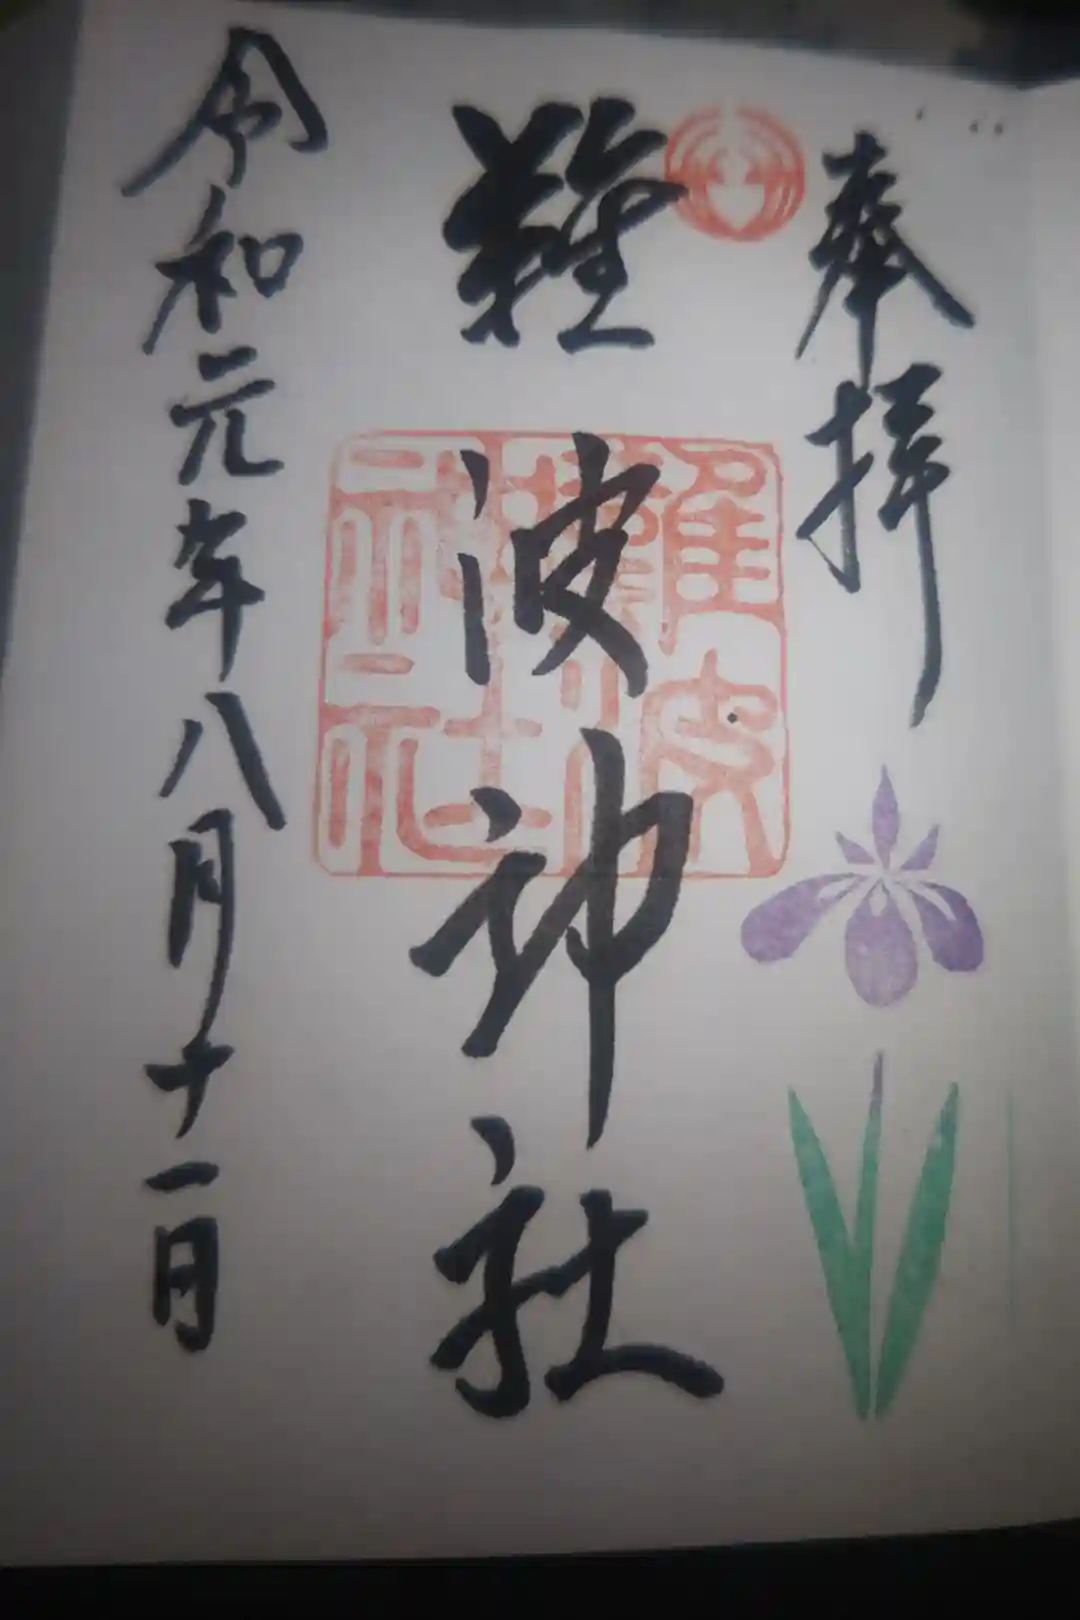 奉拝
難波神社
難波
神社
令和元年八月十一日